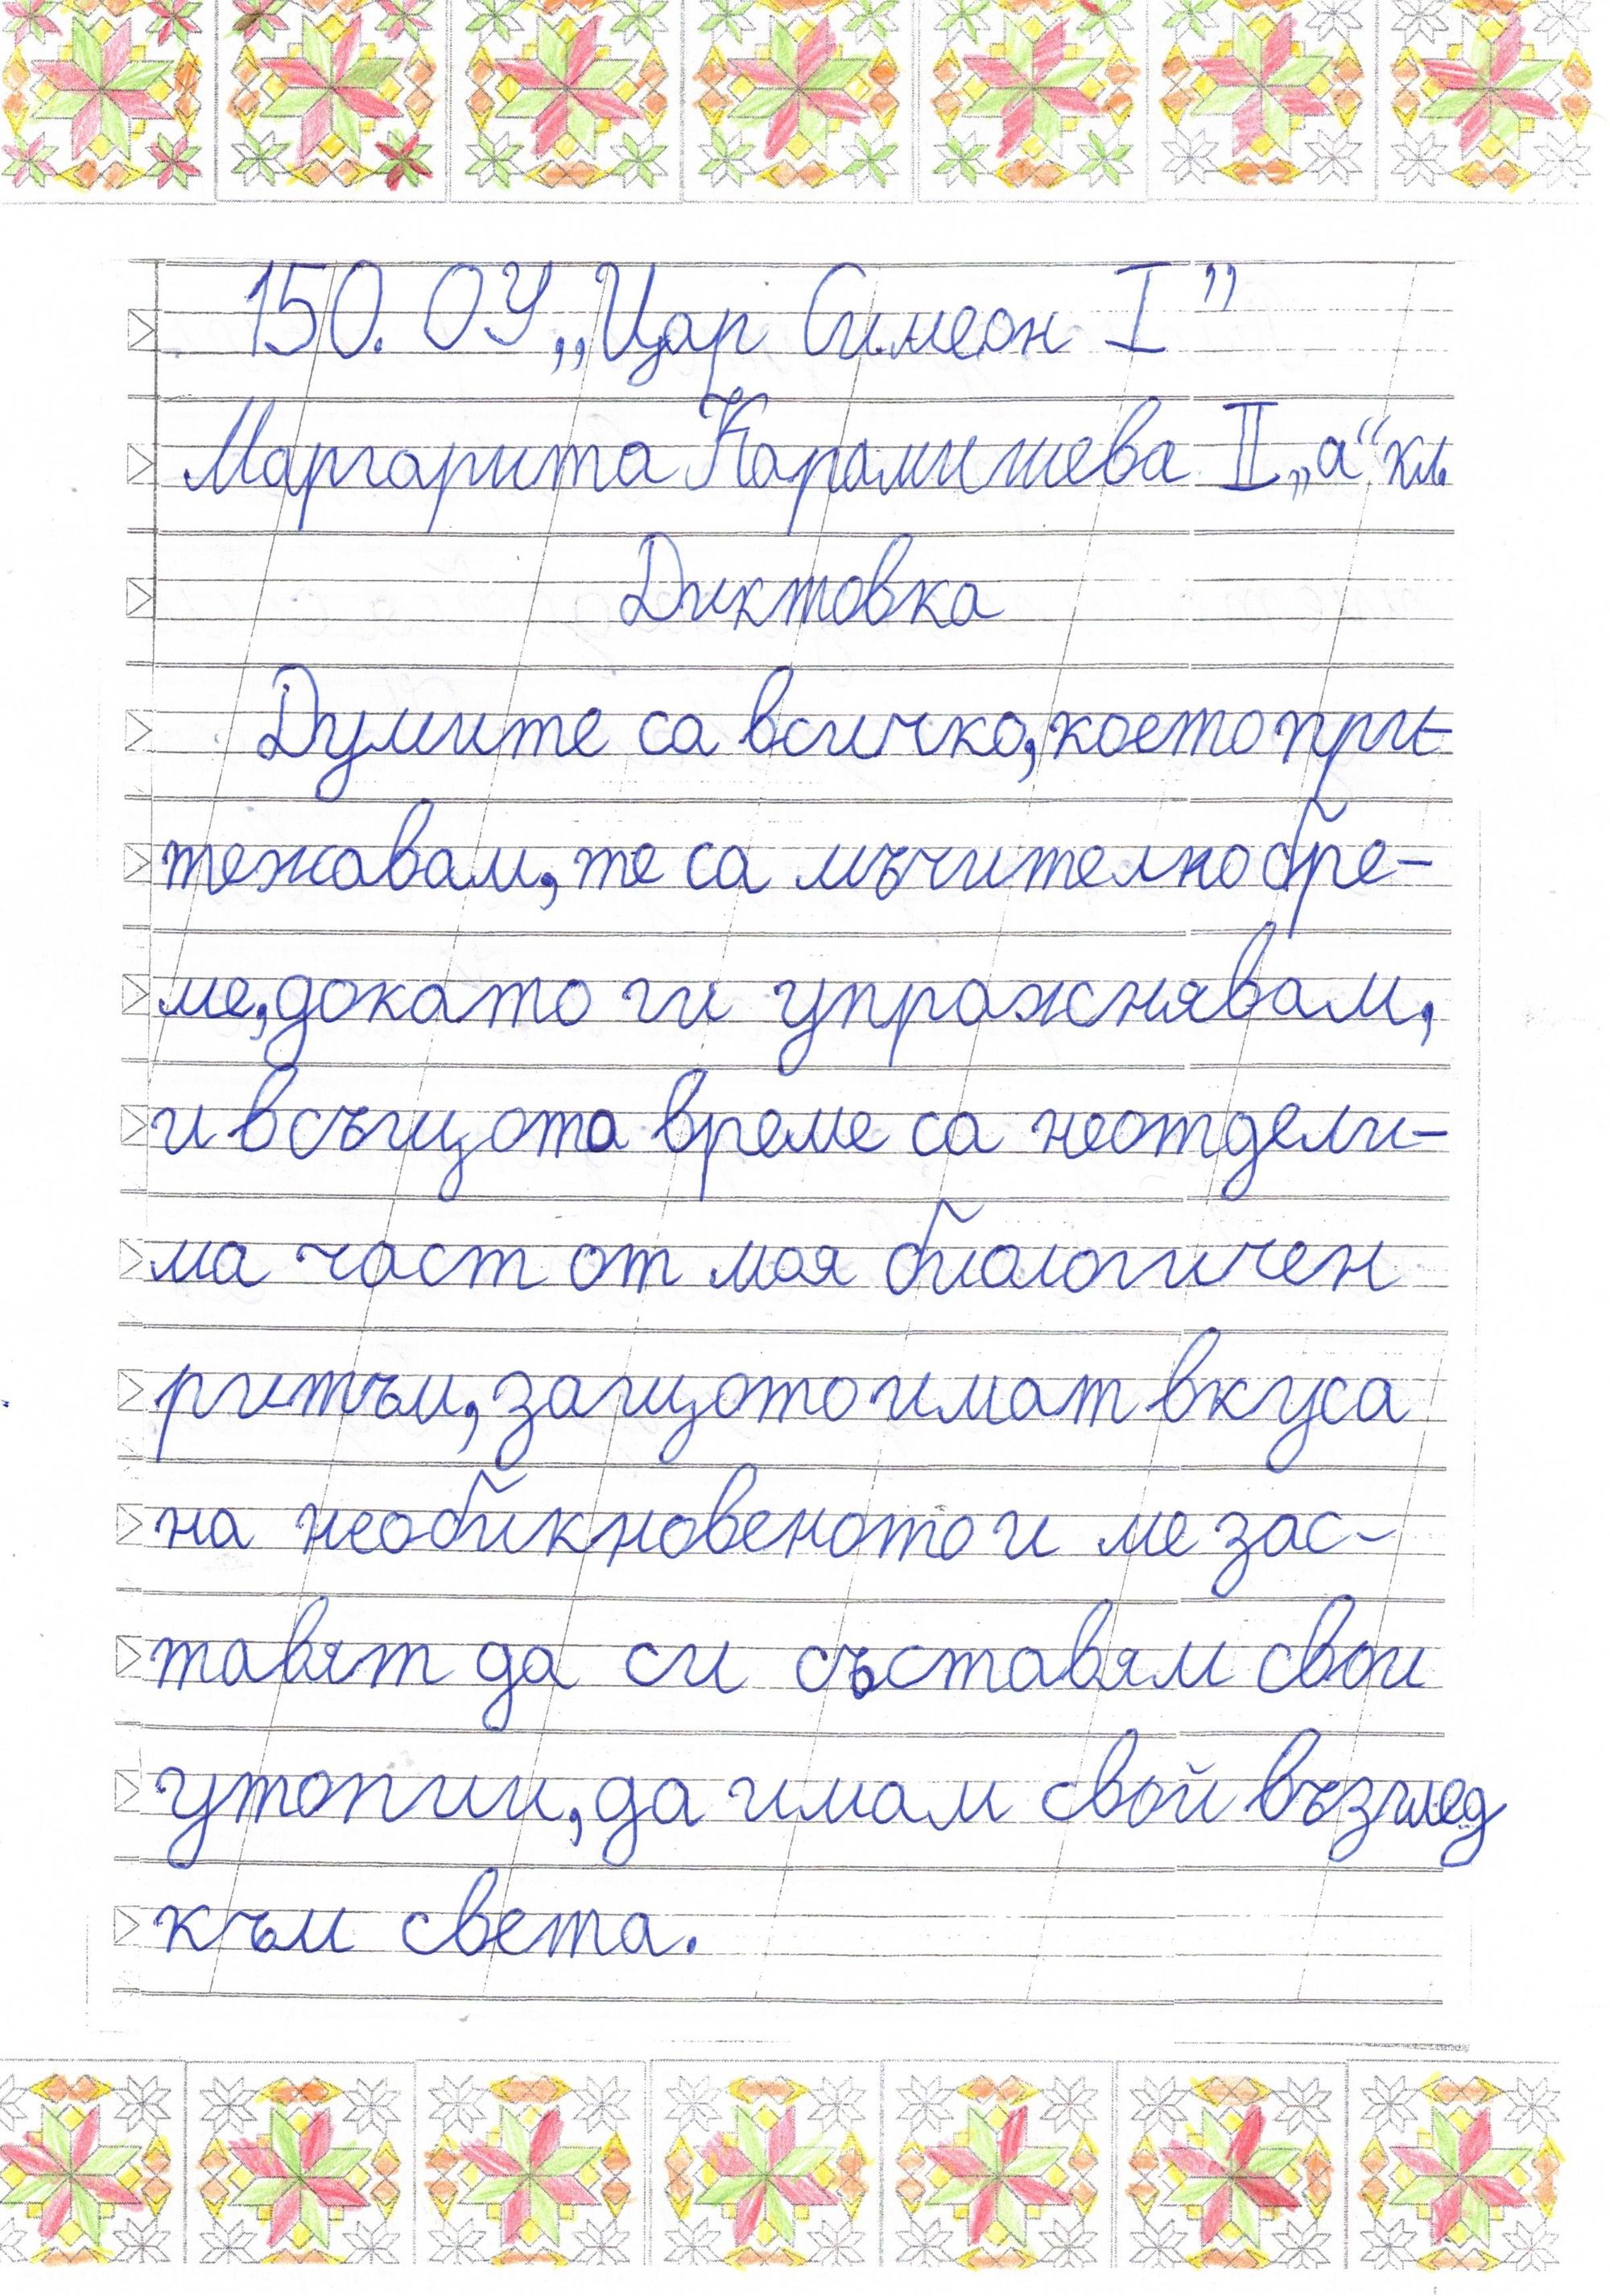 150. ОУ „Цар Симеон I”
Маргарита Карамишева II „а“ кл.
Диктовка
Думите са всичко, което при-
тежавам, те са мъчително бре-
ме, докато ги упражнявам,
и в същото време са неотдели-
ма част от моя биологичен
ритъм, защото имат вкуса
на необикновеното и ме зас-
тавят да си съставям свои
утопии, да имам свой възглед
към света.